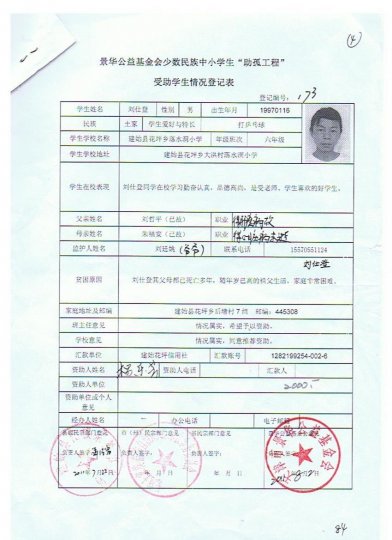 (4)
景华公益基金会少数民族中小学生“助孤工程”
受助学生情况登记表
登记编号：173
学生姓名 刘仕登 性别 男 出生年月 19970116
民族 土家 学生爱好与特长 打乒乓球
学生学校名称 建始县花坪乡落水洞小学 年级班次 六年级
学生学校地址 建始县花坪乡大洪村落水洞小学
学生在校表现 刘仕登同学在校学习勤奋认真，品德高尚，是受老师、学生喜欢的好学生。
父亲姓名 刘哲平（已故） 职业
母亲姓名 朱继安（已故） 职业
监护人姓名 刘廷境 (爷爷) 联系电话 15570551124
刘仕登
贫困原因 刘仕登其父母都已死亡多年，随年岁已高的祖父生活，家庭非常困难。
家庭地址及邮编 建始县花坪乡后塘村7组 邮编：445308
班主任意见 情况属实，希望予以资助。
学校意见 情况属实，同意推荐资助。
汇款单位 建始花坪信用社 汇款账号 1282199254-002-6
资助人姓名 资助人电话 汇款人
资助人单位 2000.-
资助单位或个人
意见
经办人姓名 一 办公电话 电子邮箱
县民宗部门意见 市（州）民宗部门意见 省民宗部门意见 景华公益基金会
负责人签字： 负责人签字： 负责人签字：
年 月 日 年 月 日
84